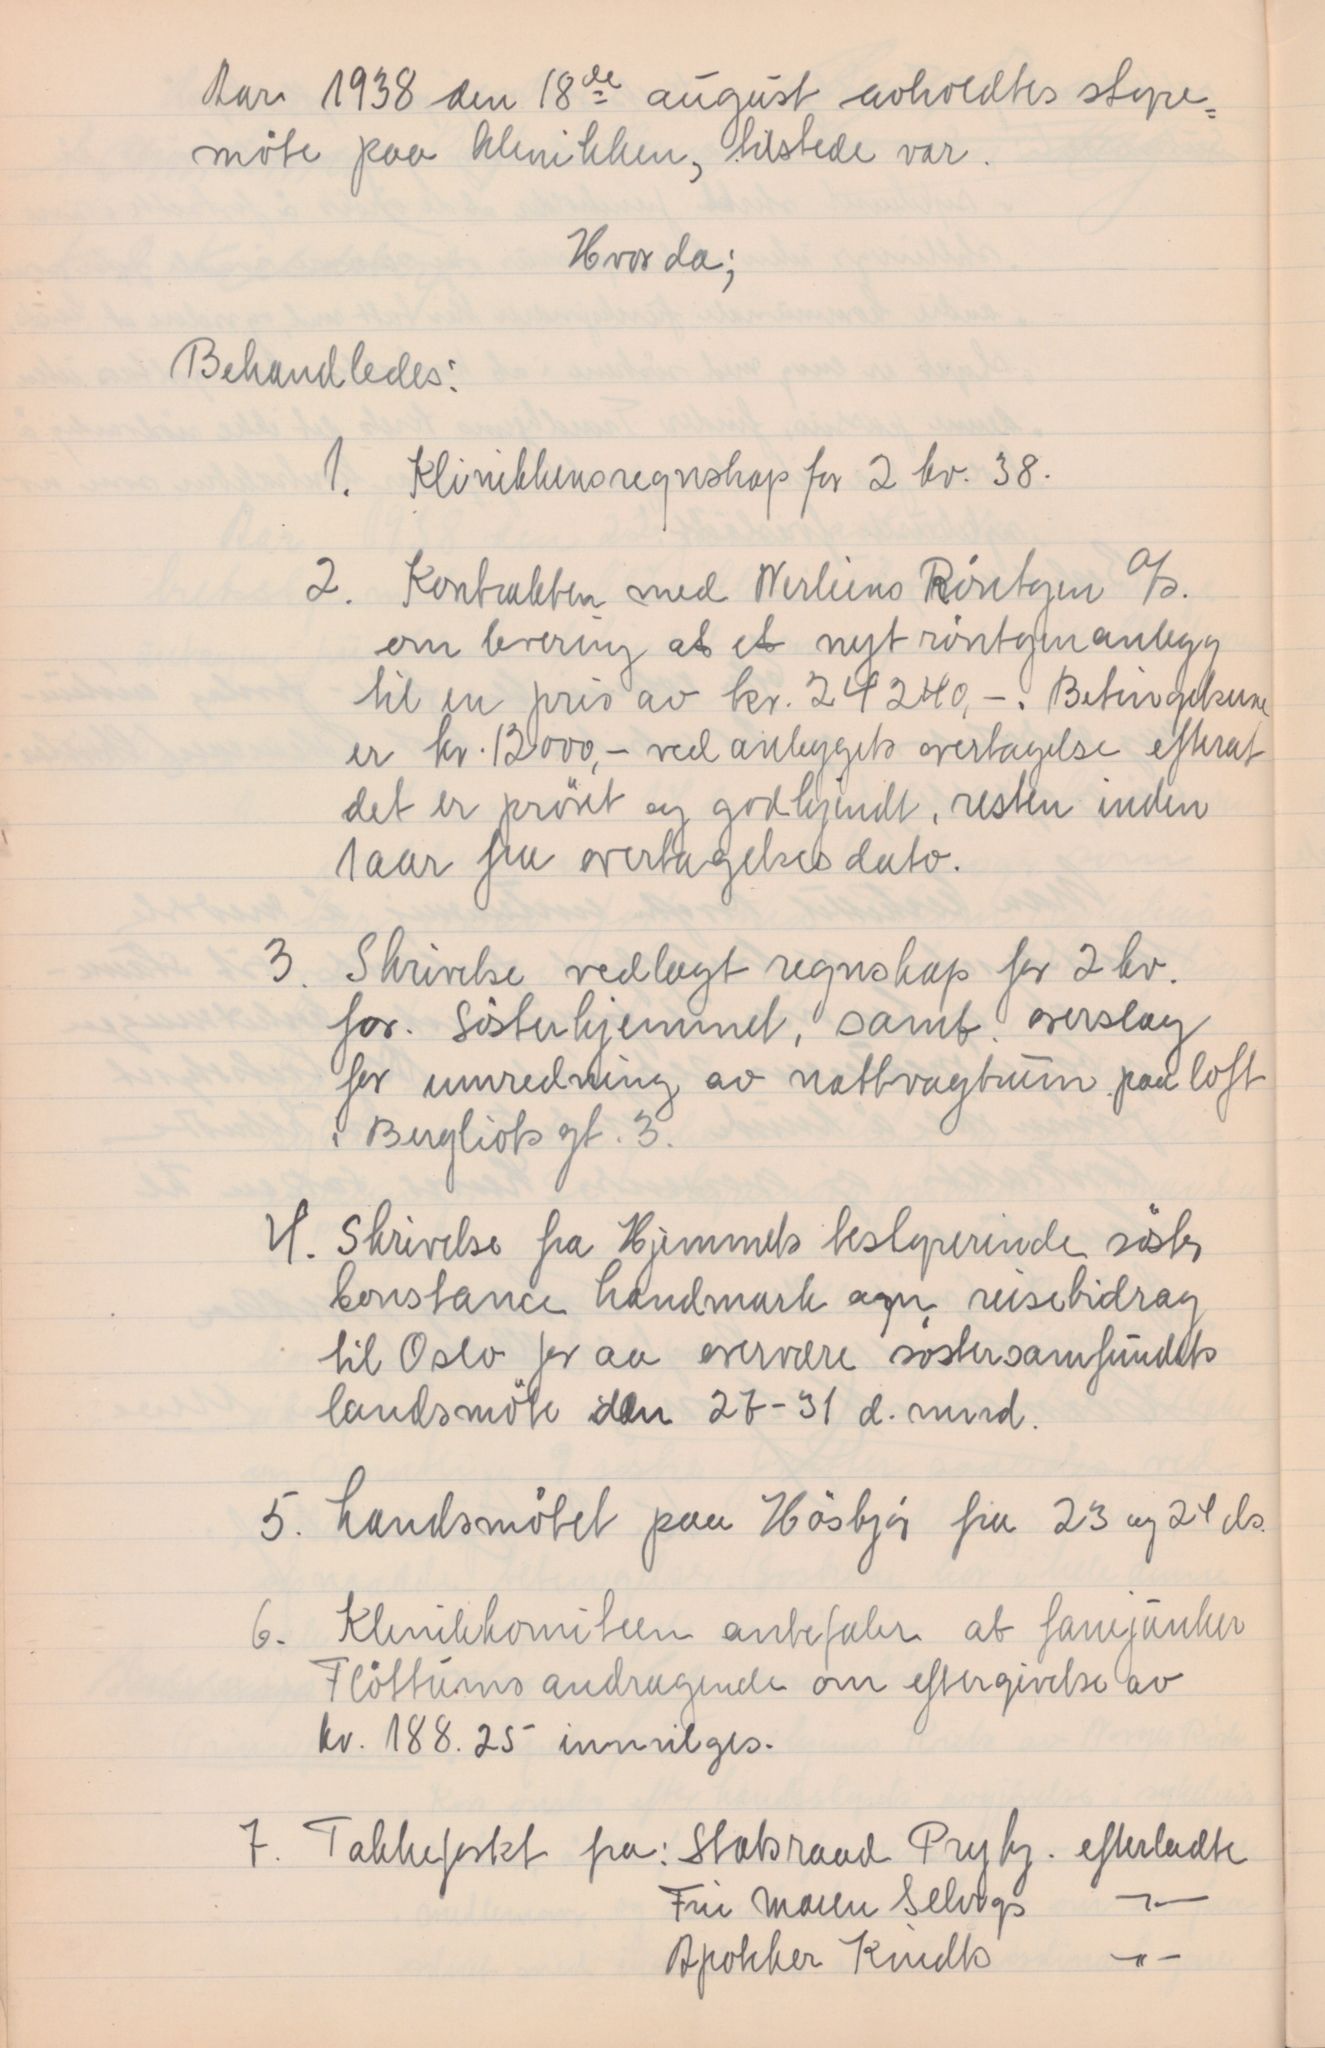 Aar 1938 den 18de august avholdtes styre=
möte paa klinikken, tilstede var.
Hvor da;
Behandledes:
1. Klinikkensregnskap for 2 kv. 38.
2. Kontrakten med Werliens Röntgen A/S.
om levering at et nyt röntgenanlegg
til en pris av kr. 24240,-. Betingelsene
er kr. 12000,- ved anleggets overtagelse efterat
det er prövet og godkjendt, resten inden
1 aar fra overtagelses dato.
3. Skrivelse vedlagt regnskap for 2 kv.
for. Sösterhjemmet, samt. overslag
for innredning av nattvagtrum paa loft
i Bergliots gt. 3.
4. Skrivelse fra Hjemmets bestyrerinde söster
Constance Landmark ang. reisebidrag
til Oslo for aa overvære söstersamfundets
landsmöte den 27-31 d. mnd.
5. Landsmötet paa Hösbjör fra 23 og 24 ds.
6. Klinikkomiteen anbefaler at fanejunker
Flöttums andragende om eftergivelse av
kr. 188.25 innvilges.
7. Takkekort fra: Statsraad Pryhz. efterladte
Fru Maren Selvogs —"—
Apoteker Kindts —"—